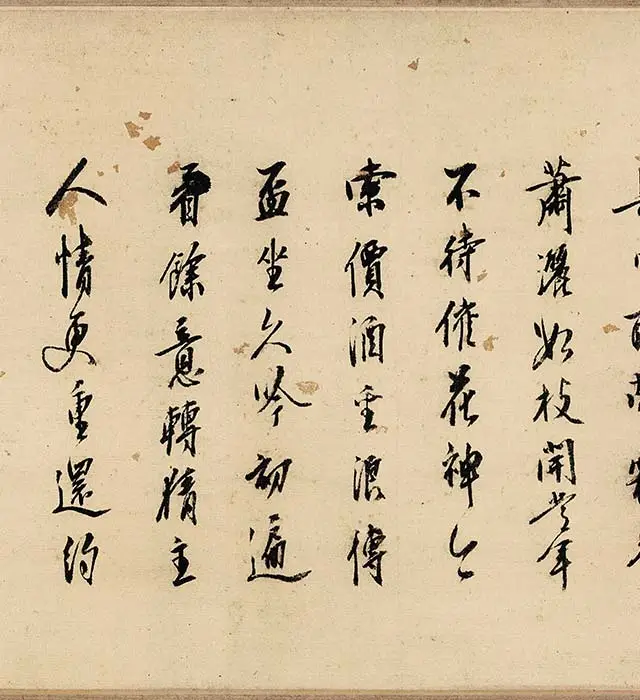 蕭灑數枝開當年
不待催花神今
索價酒重浪傳
盃坐久吟初遍
看餘意轉精主
人情更重還約